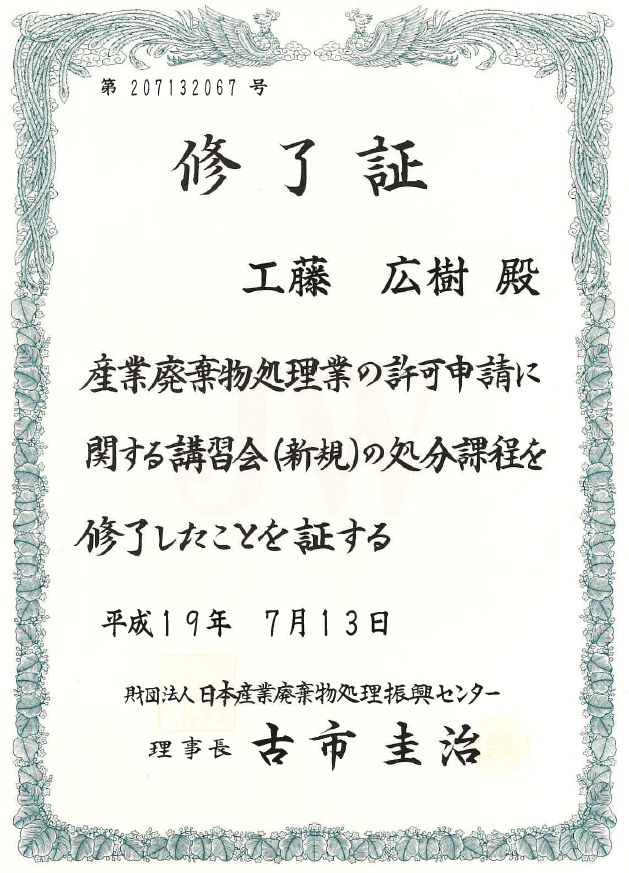 第 207132067 号
修了証
工藤　広樹 殿
産業廃棄物処理業の許可申請に
関する講習会(新規)の処分課程を
修了したことを証する
平成19年　7月13日
財団法人 日本産業廃棄物処理振興センター
理事長 古市圭治
JW